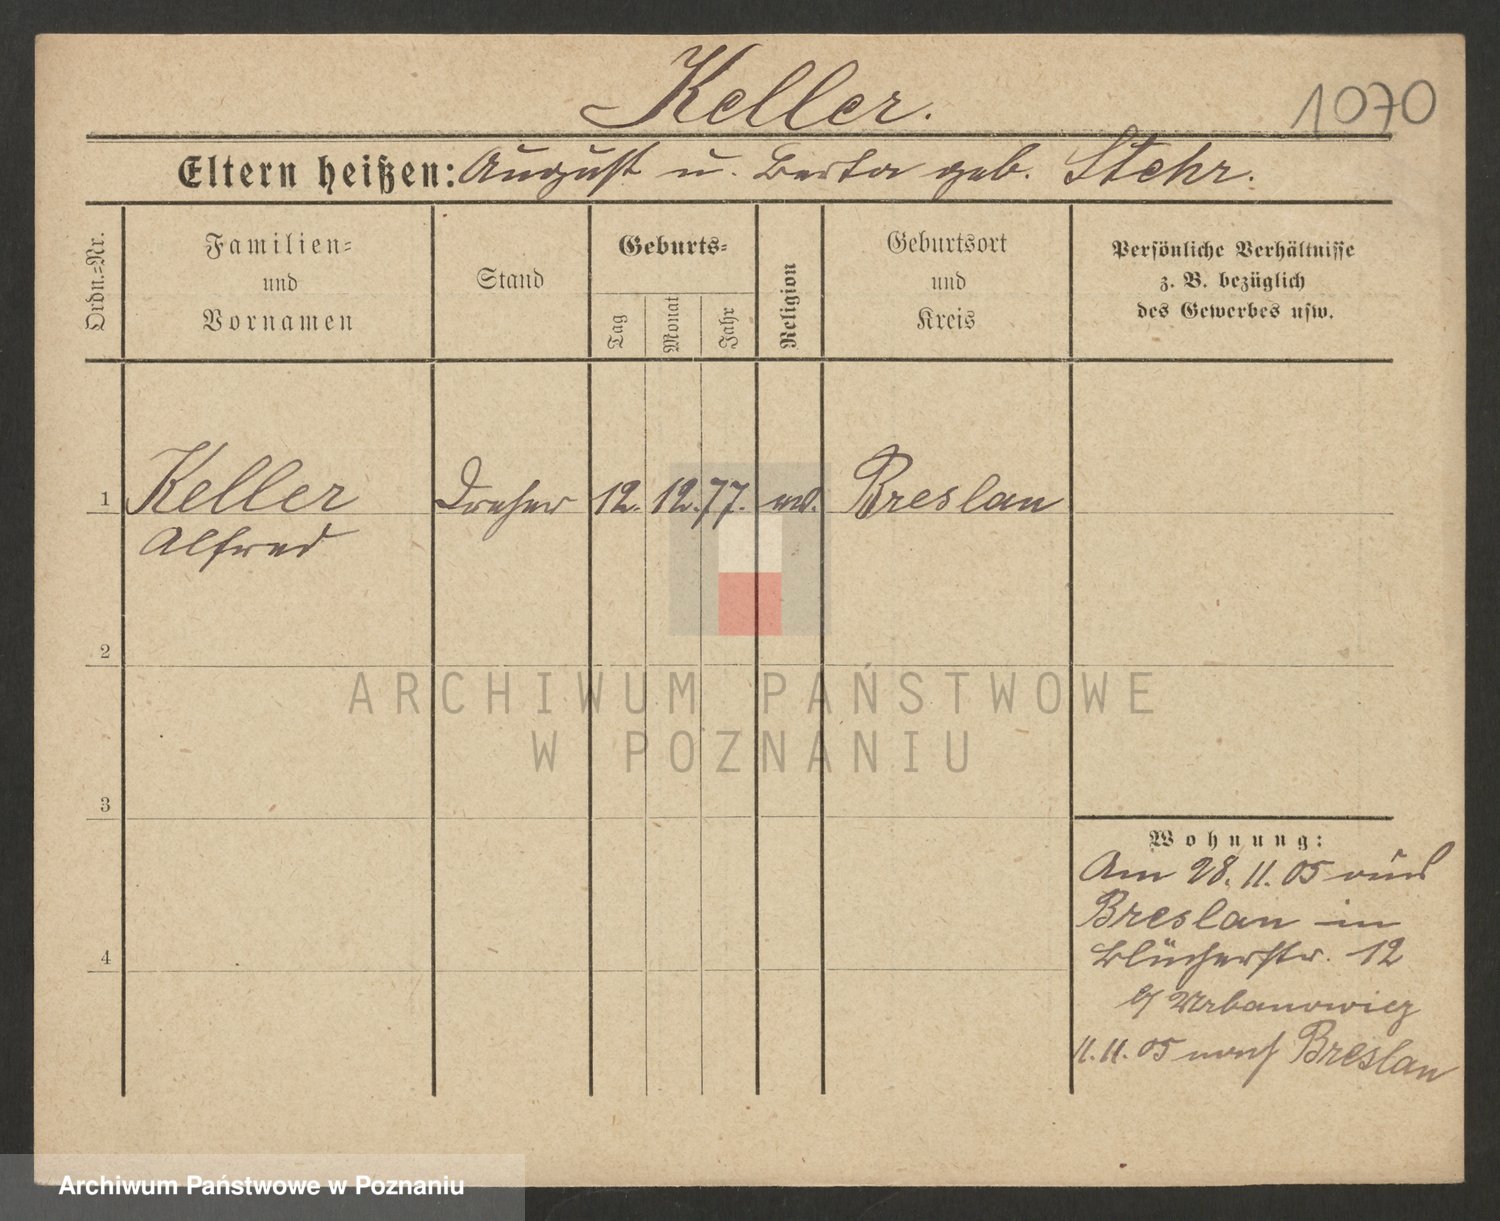 Keller.
1070
Eltern heißen: August u. Berta geb. Stehr.
Ordn.=Nr.
Familien=
und
Vornamen
Stand
Geburts=
Tag
Monat
Jahr
Religion
Geburtsort
und
Kreis
Persönliche Verhältnisse
z. B. bezüglich
des Gewerbes usw.
1 Keller Dreher 12. 12. 77. ev. Breslau
Alfred
2
3
4
Wohnung:
Am 28. 11. 05 aus
Breslau in
Blücherstr. 12
b/ Urbanowicz
11. 11. 05 nach Breslau
ARCHIWUM PAŃSTWOWE
W POZNANIU
Archiwum Państwowe w Poznaniu